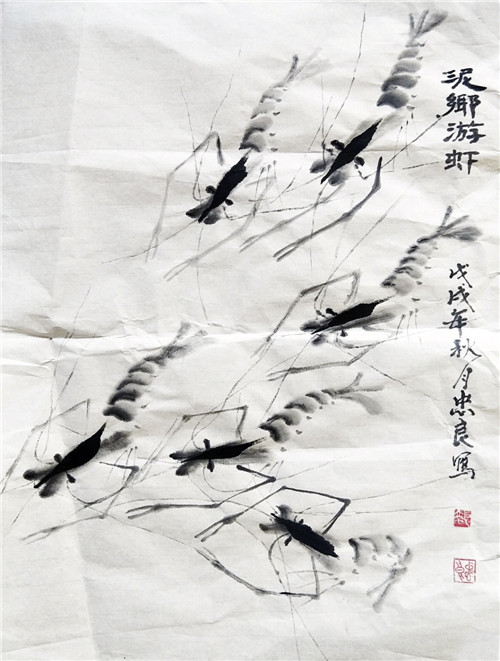 泥乡游虾
戊戌年秋月忠良写